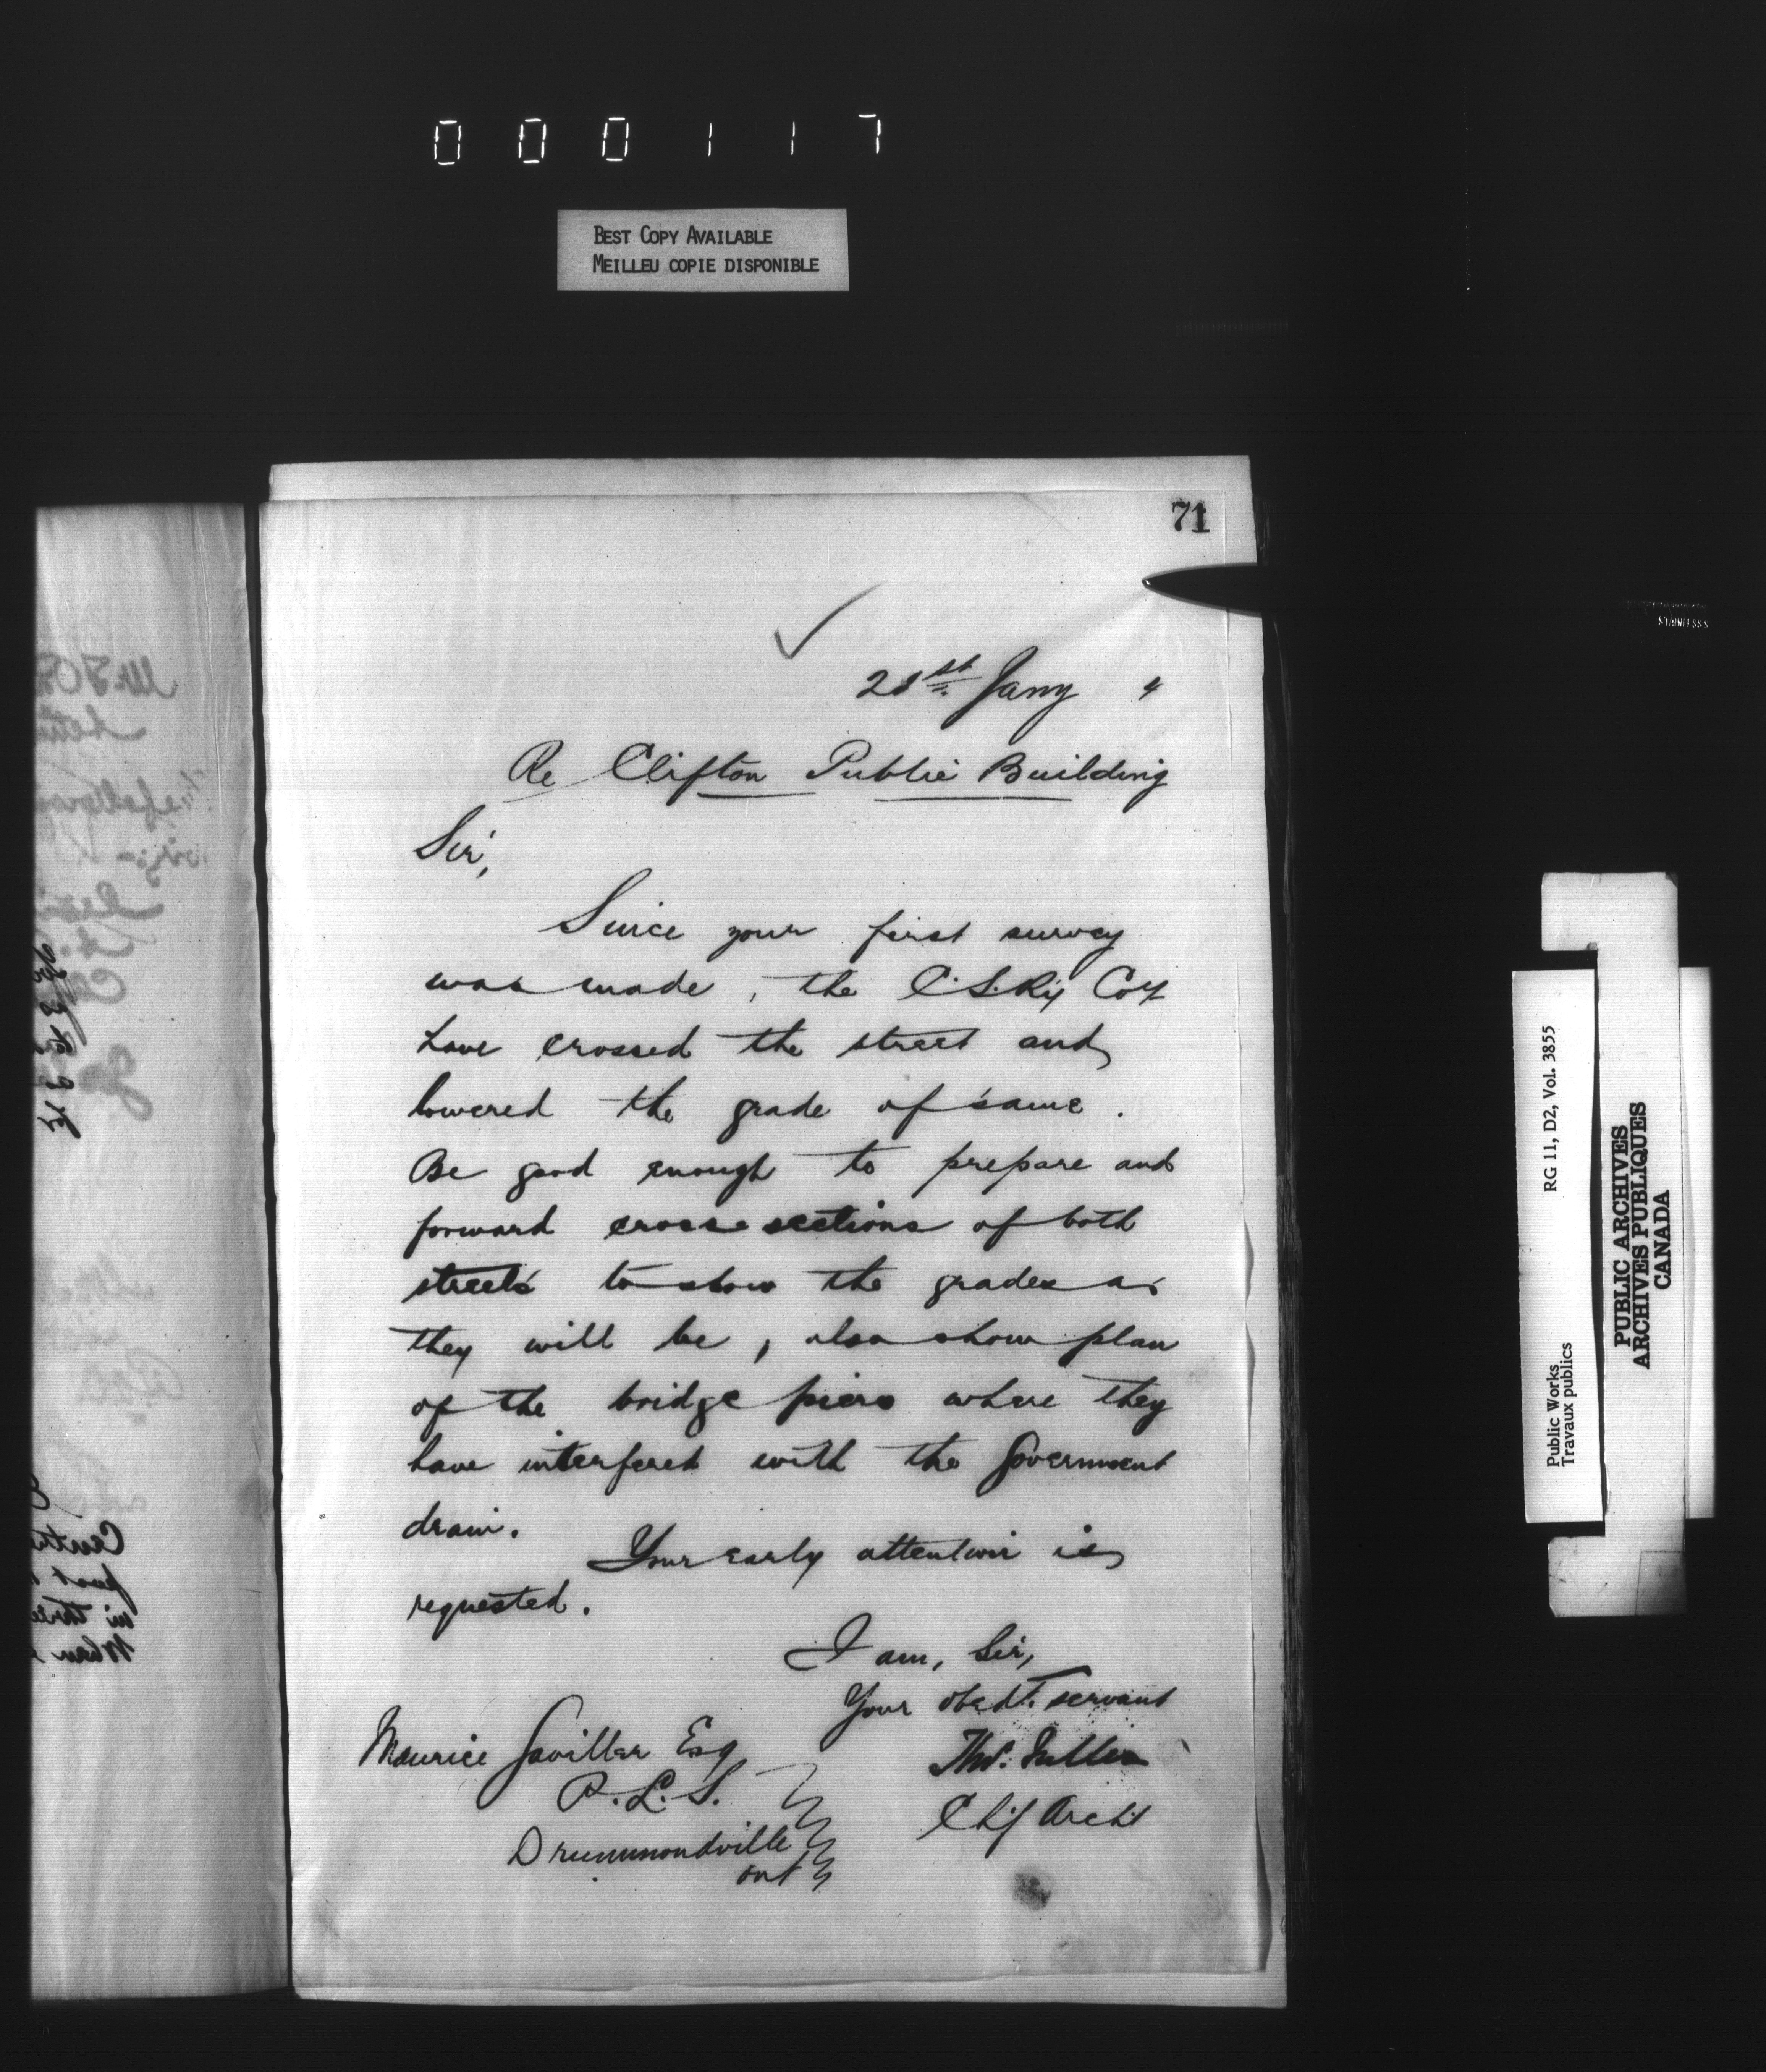 000117
BEST COPY AVAILABLE
MEILLEU COPIE DISPONIBLE
71
21st Jany 4
Re Clifton Public Building
Sir,
Since your first survey
was made, the C.S. Ry Coy
have crossed the street and
lowered the grade of same.
Be good enough to prepare and
forward cross sections of both
streets to show the grades as
they will be, also show plan
of the bridge piers where they
have interfered with the Government
drain.
Your early attention is
requested.
I am, Sir,
Your obedt. servant
Thos. Fuller
Chf Archt
Maurice Gaviller Esq
P.L.S.
Drummondville
Ont
STAINLESS
RG 11, D2, Vol. 3855
Public Works
Travaux publics
PUBLIC ARCHIVES
ARCHIVES PUBLIQUES
CANADA